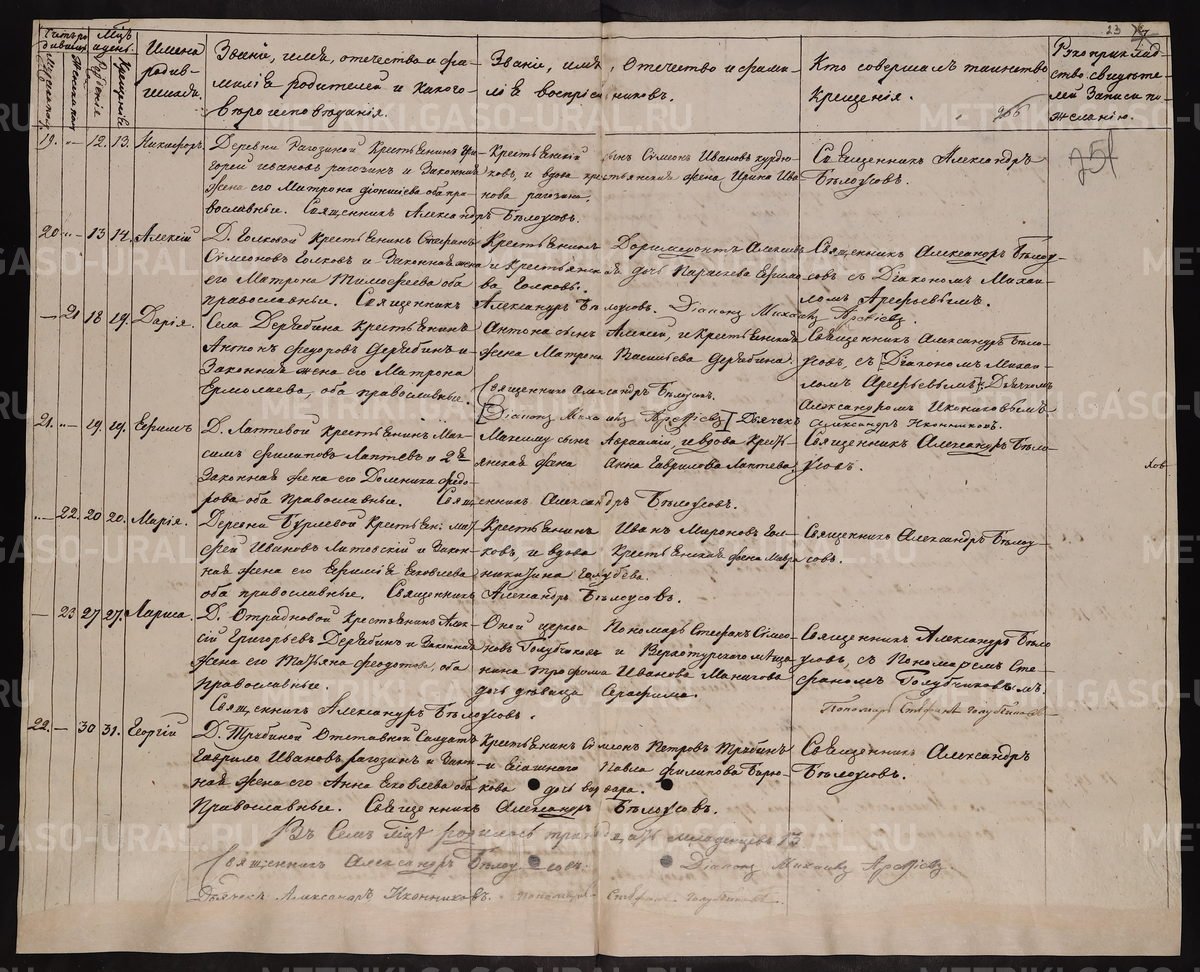 23
Счетъ ро
дившихся
Мужеска полу
Женска полу
Мѣсяцъ
и день.
Рожденіе
Крещеніе
Имена
родив-
шихся.
Званіе, имя, отечество и фа-
миліе родителей и какого-
вѣроисповѣданія.
Званіе, имя, Отечество и фами-
ліе воспріемниковъ.
Кто совершалъ таинство
крещенія.
Рукоприклад-
ство свидѣте-
лей Записи по-
желанію.
266
251
19. 12. 13. Никифоръ.
Деревни Рагозиной Крестьянинъ Гри-
горей Ивановъ рагозинъ и Законная
жена его Матрона Діонисіева оба пра-
вославные. Священникъ Александръ Бѣлоусовъ.
Крестьянскій сынъ Симеонъ Ивановъ
ковъ, и вдова крестьянская жена Ирина Ива
нова рагозина.
Священникъ Александръ
Бѣлоусовъ.
20 13 14. Алексій
Д. Голковой Крестьянинъ Стефанъ
Симеоновъ Голковъ и Законная жена
его Матрона Тимофеева оба
православные. Священникъ Александръ Бѣлоусовъ. Діаконъ Михаилъ Арефьевъ.
Крестьянинъ Доримедонтъ Алексѣевъ
и Крестьянская дочь Параскева Ермо
ва Голкова.
Священникъ Александръ Бѣлоу
совъ съ Діакономъ Михаи-
ломъ Арефьевымъ.
21 18 19. Дарія.
Села Дерябина Крестьянинъ
Антонъ Федоровъ Дерябинъ и
Законная жена его Матрона
Ермолаева, оба православные.
Антона сынъ Алексѣй, и Крестьянская
жена Матрона Васильева Дерябина.
Священникъ Александръ Бѣлоусовъ.
[Діаконъ Михаилъ Арефьевъ] Дьячекъ Александръ Иконниковъ.
Священникъ Александръ Бѣло-
усовъ, съ [Діакономъ Михаи-
ломъ Арефьевымъ] Дьячкомъ
Александромъ Икониковымъ
21. 19. 19. Ефимъ
Д. Лаптевой Крестьянинъ Мак-
симъ Филиповъ Лаптевъ и 2я
Законная жена его Доминика Федо-
рова оба Православные. Священникъ Александръ Бѣлоусовъ.
Максиму сынъ Авраамій, и вдова Кресть
янская жена Анна Гаврилова Лаптева
Священникъ Александръ Бѣло-
усовъ.
22. 20 20. Марія.
Деревни Бурлевой Крестьян: Мат
фей Ивановъ Литовскій и Закон-
ная жена его Ефимія Яковлева
оба православные. Священникъ Александръ Бѣлоусовъ.
Крестьянинъ Иванъ Мироновъ Гол-
ковъ, и вдова Крестьянская жена Мавра
Голубева.
Священникъ Александръ Бѣлоу-
совъ.
23 27 27. Лариса.
Д. Отрадновой Крестьянинъ Алек-
сій Григорьевъ Дерябинъ и Законная
жена его Татьяна Феодотова, оба
православные.
Священникъ Александръ Бѣлоусовъ.
Оной церкви Пономарь Стефанъ Симео-
новъ Голубчиковъ и Верхотурскаго мѣща-
нина Трофима Иванова
дочь дѣвица Серафима.
Священникъ Александръ Бѣло
усовъ, съ Пономаремъ Сте-
фаномъ Голубчиковымъ.
Пономарь Стефанъ Голубчиковъ
22. 30 31. Георгій
Д. Трябиной Отставной Солдатъ
Гаврило Ивановъ рагозинъ и Закон-
ная жена его Анна Яковлева оба
Православные. Священникъ Александръ Бѣлоусовъ.
Крестьянинъ Симеонъ Петровъ Трябинъ
и Павла Филипова Бирю-
кова дочь варвара.
Священникъ Александръ
Бѣлоусовъ.
Въ Семъ мцѣ родилось младенцевъ 13
Священникъ Александръ Бѣлоусовъ. Діаконъ Михаилъ Арефьевъ.
Дьячекъ Александръ Иконниковъ. Пономарь Стефанъ Голубчиковъ.
METRIKI.GASO-URAL.RU